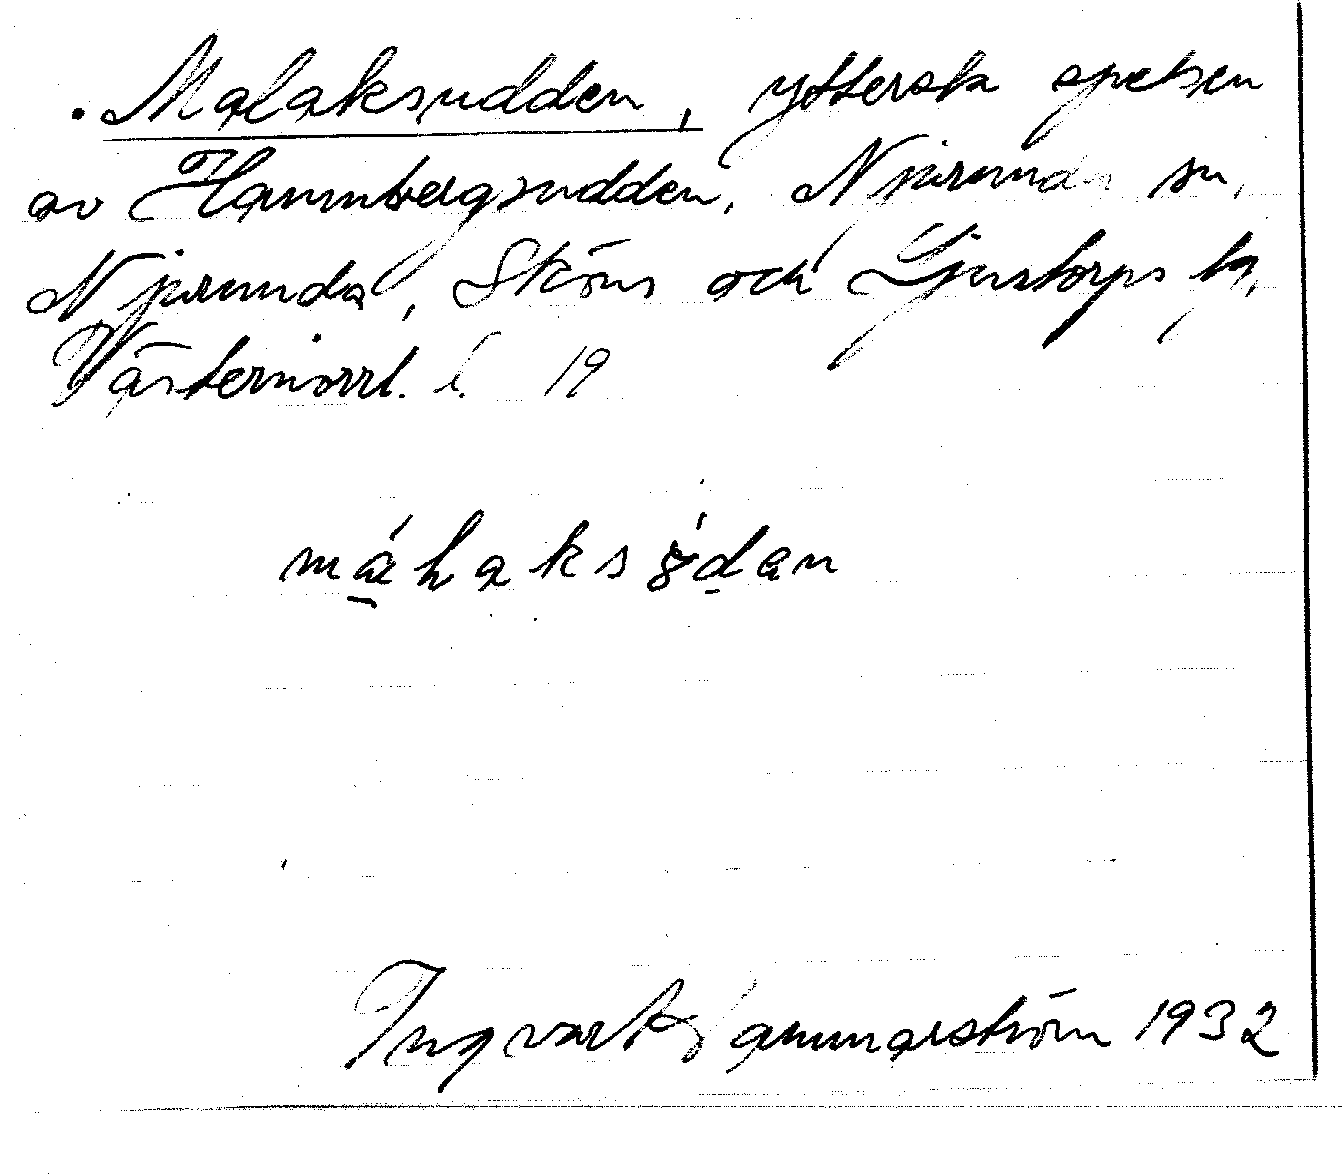 Malaksudden, yttersta spetsen
av Hamnbergsudden, Njurunda sn,
Njurunda, Sköns och Ljustorps tg,
Västernorrl. l. 19
Ingvart Hammarström 1932